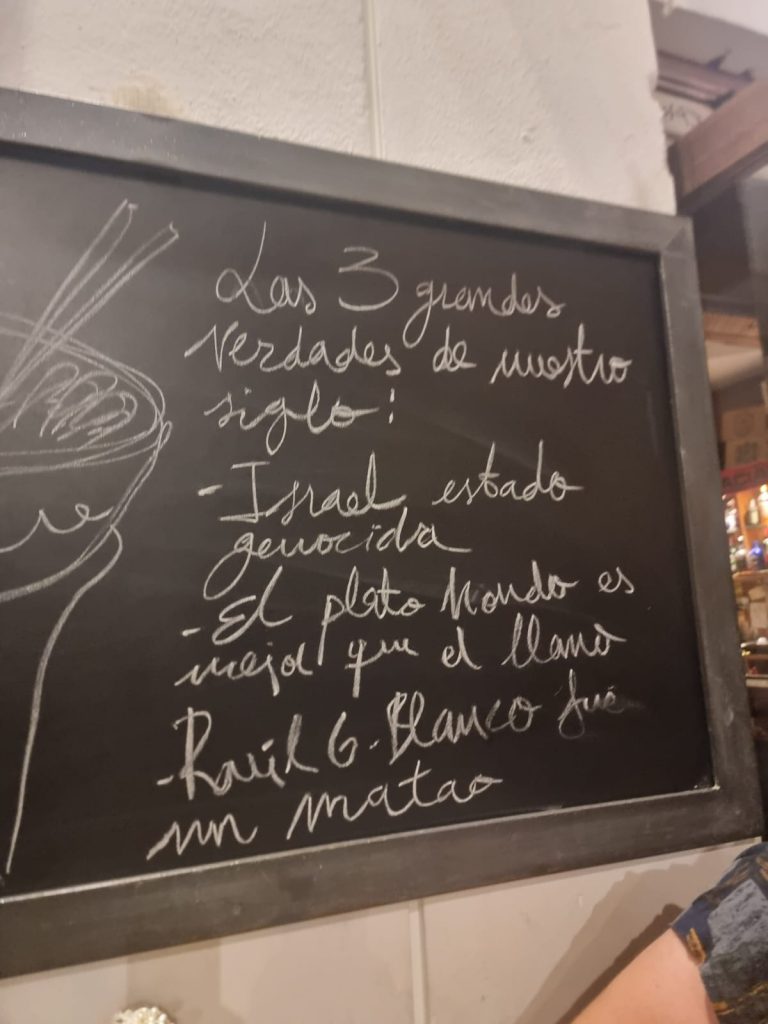 Las 3 grandes
verdades de nuestro
siglo:
- Israel estado
genocida
- El plato hondo es
mejor que el llano
- Raúl G. Blanco fué
un matao
re